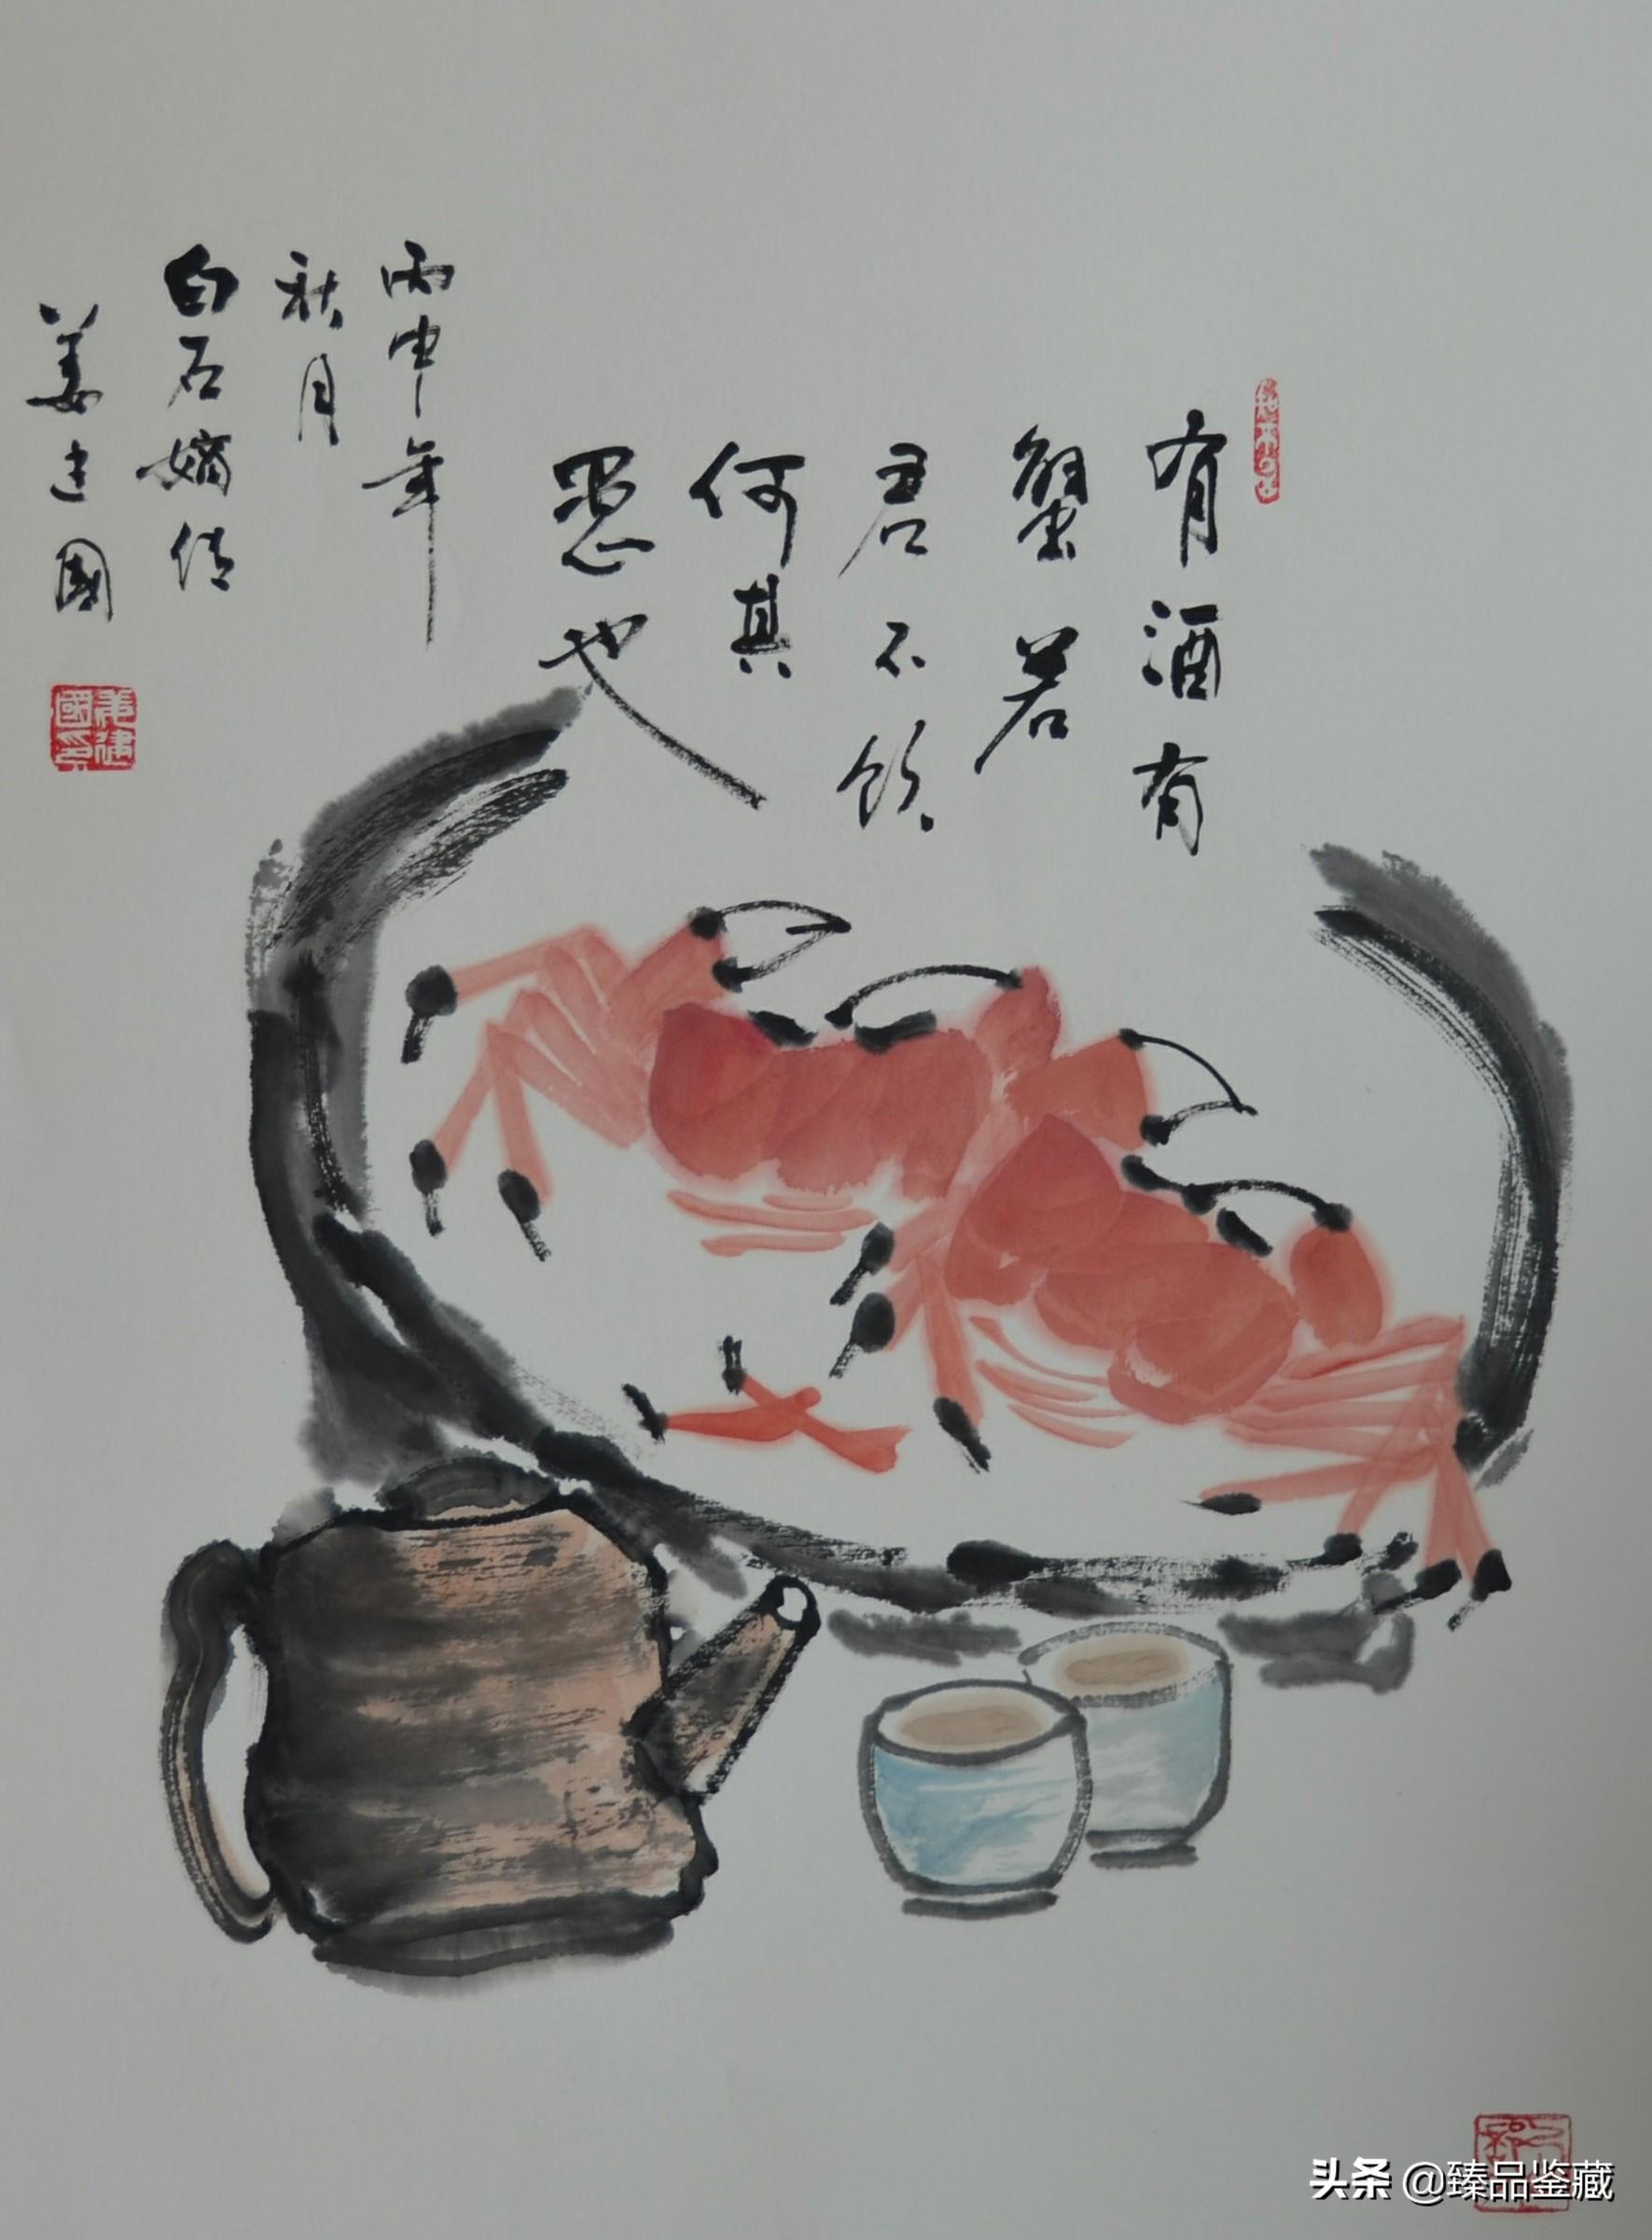 有酒有
蟹若
君不饮
何其
愚也
丙申年
秋月
白石嫡传
姜建國
姜建國印
头条 @臻品鉴藏